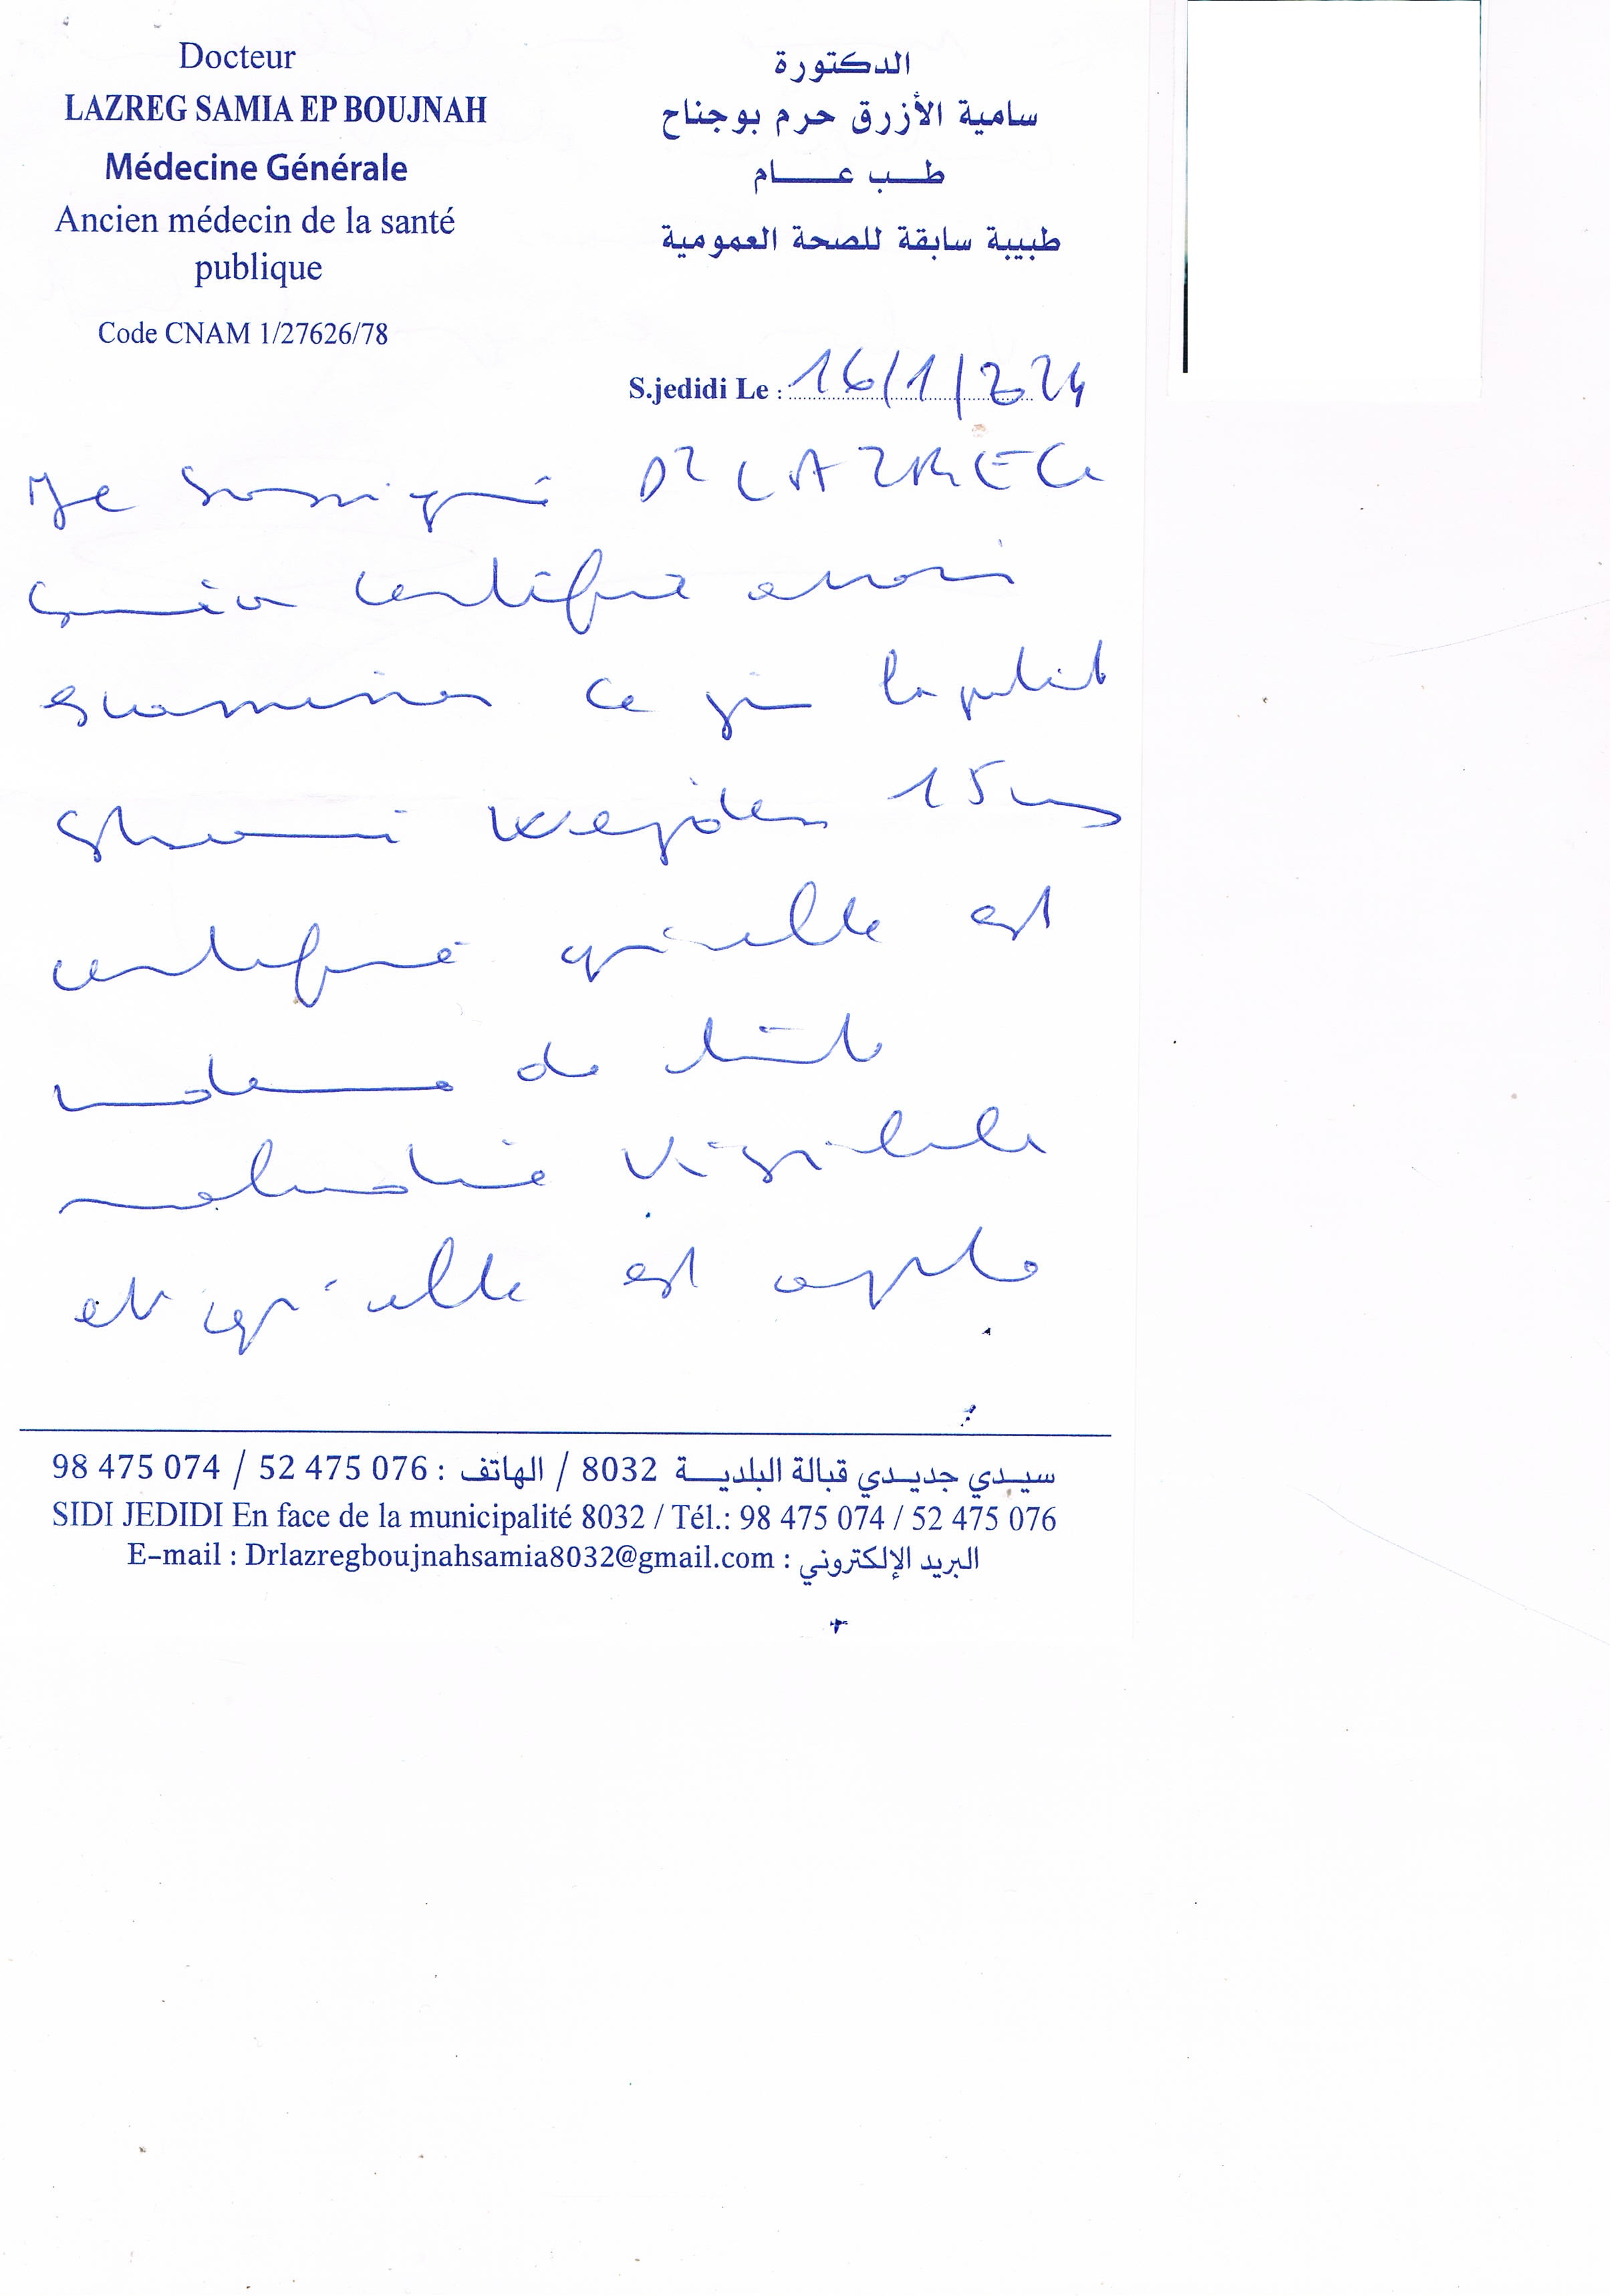 Docteur
LAZREG SAMIA EP BOUJNAH
Médecine Générale
Ancien médecin de la santé
publique
Code CNAM 1/27626/78
الدكتورة
سامية الأزرق حرم بوجناح
طـــب عـــــام
طبيبة سابقة للصحة العمومية
S.jedidi Le : 16/1/2024
Je soussigné Dr LAZREG
Samia certifie avoir
examiner ce jour la patient
15 ans
certifie qu'elle est
indemne de toute
maladie
et qu'elle est apte
سيـدي جديـدي قبالة البلديـــة 8032 / الهاتف : 98 475 074 / 52 475 076
SIDI JEDIDI En face de la municipalité 8032 / Tél.: 98 475 074 / 52 475 076
E-mail : Drlazregboujnahsamia8032@gmail.com : البريد الإلكتروني